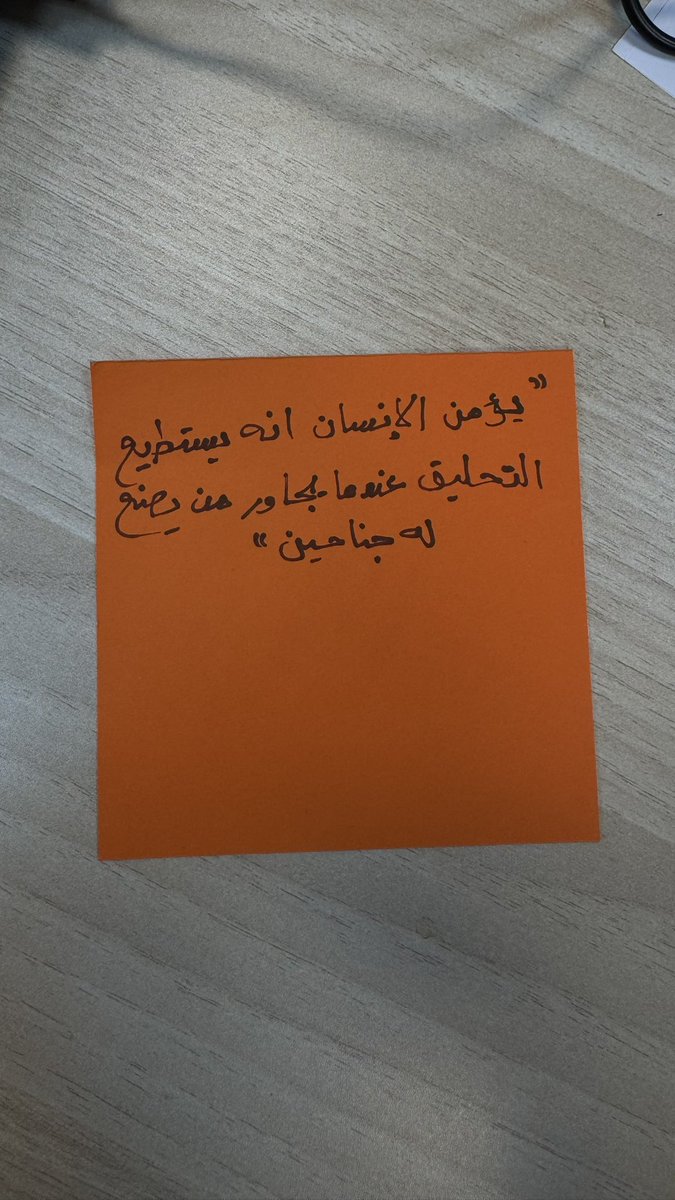 "يؤمن الإنسان انه يستطيع
التحليق عندما يجاور من يصنع
له جناحين"